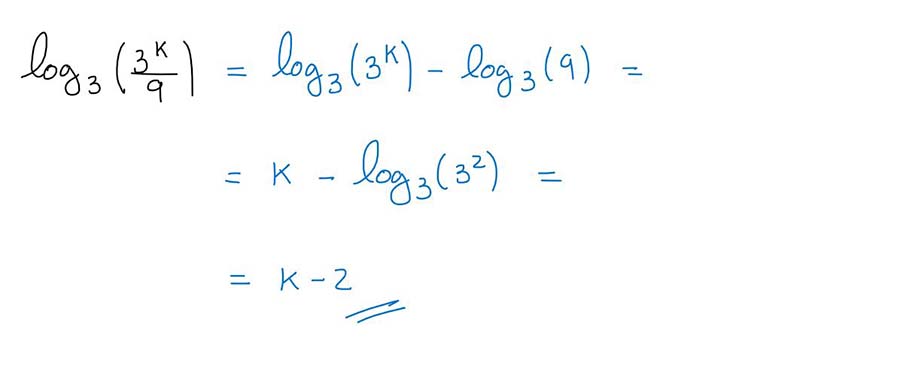 log₃(3ᴷ/9) = log₃(3ᴷ) - log₃(9) =
= K - log₃(3²) =
= K - 2